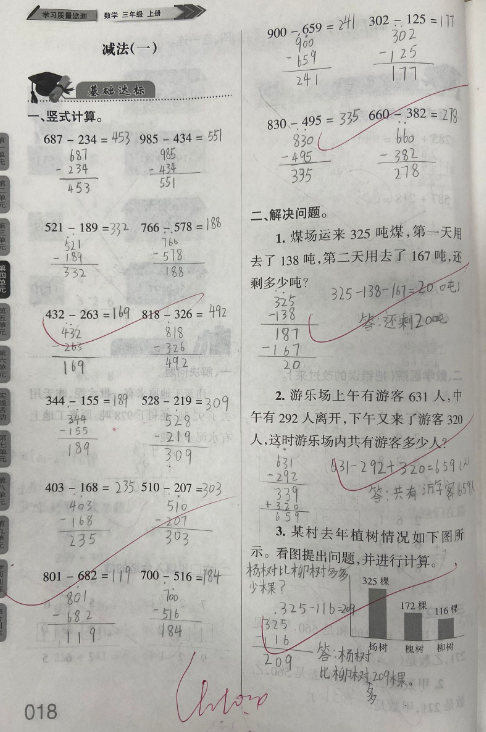 学习质量监测 数学 三年级 上册
减法(一)
基础达标
一、竖式计算。
687 - 234 = 453 985 - 434 = 551
687 985
- 234 - 434
453 551
521 - 189 = 332 766 - 578 = 188
521 766
- 189 - 578
332 188
432 - 263 = 169 818 - 326 = 492
432 818
- 263 - 326
169 492
344 - 155 = 189 528 - 219 = 309
344 528
- 155 - 219
189 309
403 - 168 = 235 510 - 207 = 303
403 510
- 168 - 207
235 303
801 - 682 = 119 700 - 516 = 184
801 700
- 682 - 516
119 184
018
900 - 659 = 241 302 - 125 = 177
900 302
- 659 - 125
241 177
830 - 495 = 335 660 - 382 = 278
830 660
- 495 - 382
335 278
二、解决问题。
1. 煤场运来 325 吨煤,第一天用
去了 138 吨,第二天用去了 167 吨,还
剩多少吨?
325-138-167=20(吨)
325
-138
187
-167
20
答:还剩20吨
2. 游乐场上午有游客 631 人,中
午有 292 人离开,下午又来了游客 320
人,这时游乐场内共有游客多少人?
631-292+320=659(人)
631
-292
339
+320
659
答:共有游客659人
3. 某村去年植树情况如下图所
示。看图提出问题,并进行计算。
杨树比柳树多多
少棵?
325-116=209
325
116
209
答:杨树
比柳树多209棵。
325 棵
172 棵 116 棵
杨树 槐树 柳树